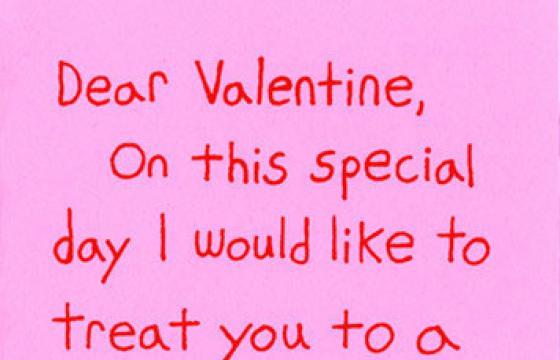 Dear Valentine,
On this special
day I would like to
treat you to a